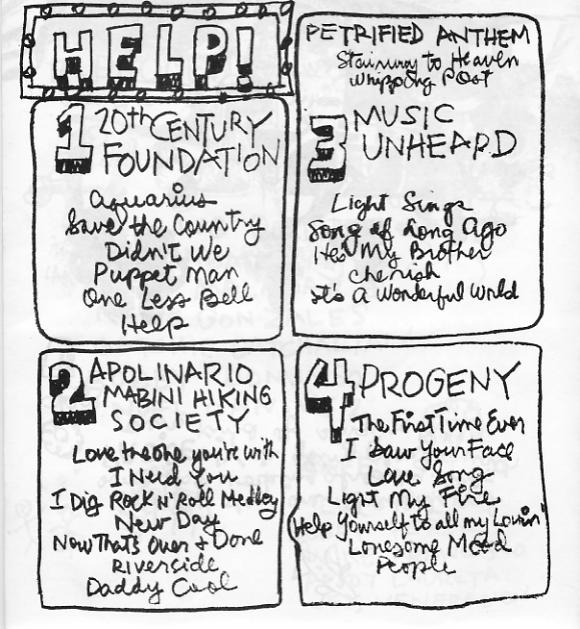 HELP!
1 20th CENTURY
FOUNDATION
Aquarius
Save the Country
Didn't We
Puppet Man
One Less Bell
Help
2 APOLINARIO
MABINI HIKING
SOCIETY
Love the one you're with
I Need You
I Dig Rock N' Roll Medley
New Day
Now That's Over + Done
Riverside
Daddy Cool
PETRIFIED ANTHEM
Stairway to Heaven
Whipping Post
3 MUSIC
UNHEARD
Light Sings
Song of Long Ago
He's My Brother
Cherish
It's A Wonderful World
4 PROGENY
The First Time Ever
I Saw Your Face
Love Song
Light My Fire
Help Yourself to all my Lovin'
Lonesome Mood
People